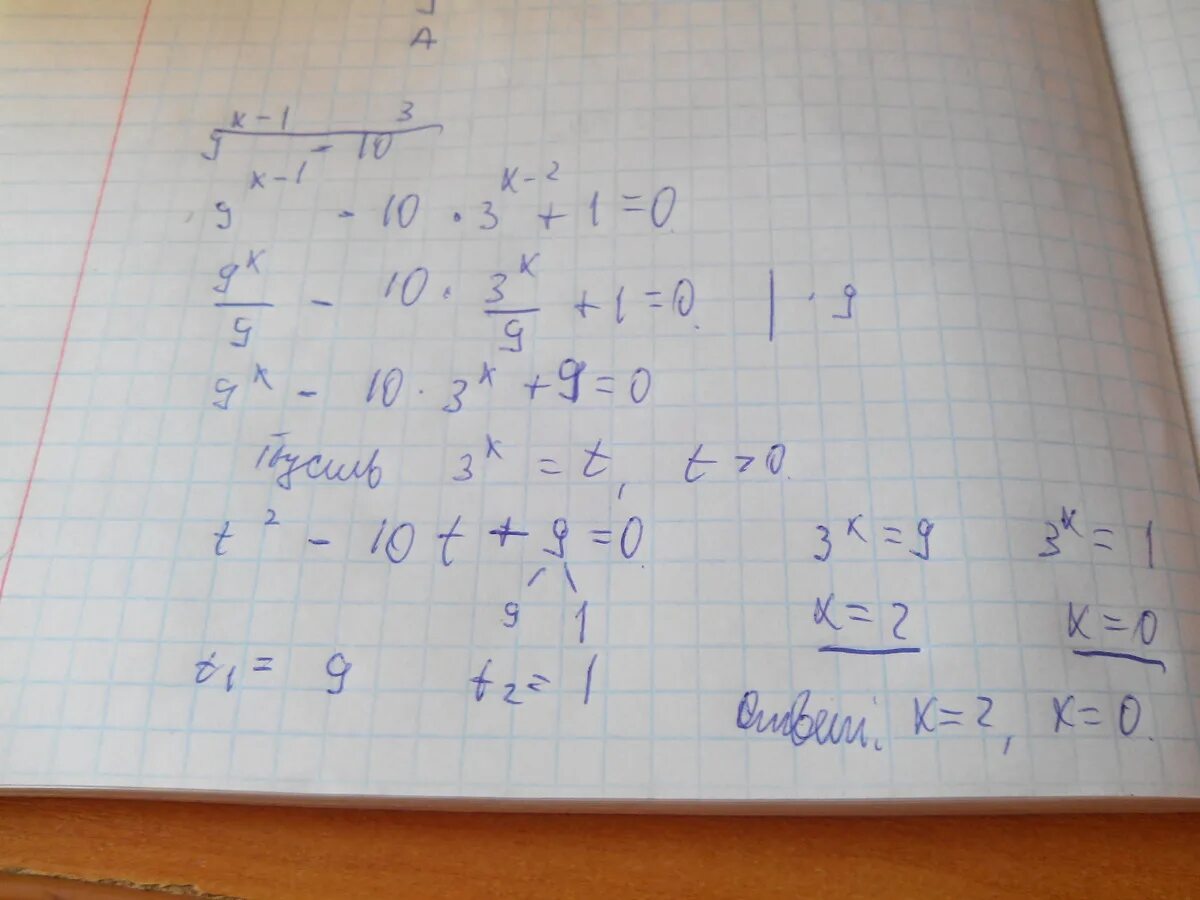 A
9^(x-1) - 10 3
9^(x-1) - 10 · 3^(x-2) + 1 = 0
9^x/9 - 10 · 3^x/9 + 1 = 0 | · 9
9^x - 10 · 3^x + 9 = 0
Пусть 3^x = t, t > 0.
t² - 10t + 9 = 0
9 1
t₁ = 9 t₂ = 1
3^x = 9 3^x = 1
x = 2 x = 0
Ответ: x = 2, x = 0.